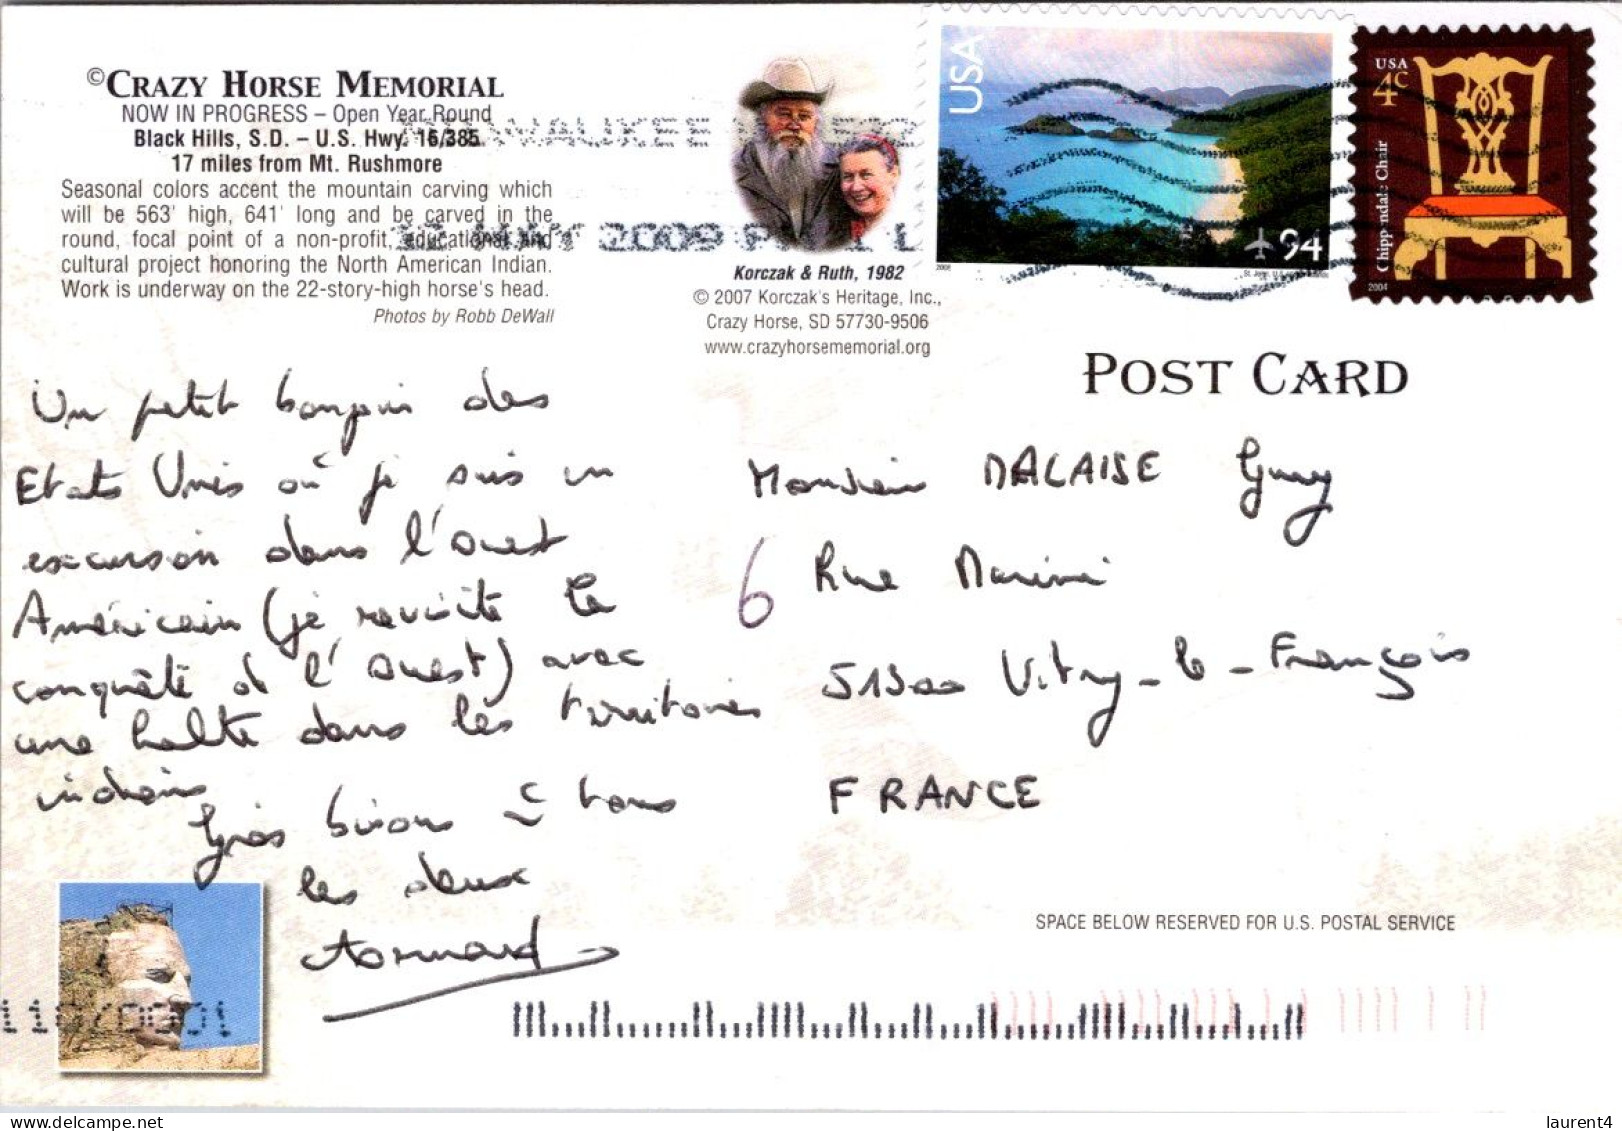 ©CRAZY HORSE MEMORIAL
NOW IN PROGRESS – Open Year Round
Black Hills, S.D. – U.S. Hwy. 16/385
17 miles from Mt. Rushmore
Seasonal colors accent the mountain carving which
will be 563' high, 641' long and be carved in the
round, focal point of a non-profit, educational and
cultural project honoring the North American Indian.
Work is underway on the 22-story-high horse's head.
Photos by Robb DeWall
MILWAUKEE
2009
Korczak & Ruth, 1982
© 2007 Korczak's Heritage, Inc.,
Crazy Horse, SD 57730-9506
www.crazyhorsememorial.org
USA
94
USA
4c
Chippendale Chair
2004
POST CARD
Un petit bonjour des
Etats Unis où je suis en
excursion dans l'ouest
Américain (je revisite la
conquête de l'ouest) avec
une halte dans les territoires
indiens
Gros bisous à tous
les deux
Monsieur MALAISE Guy
6 Rue
51300 Vitry-le-François
FRANCE
SPACE BELOW RESERVED FOR U.S. POSTAL SERVICE
laurent4